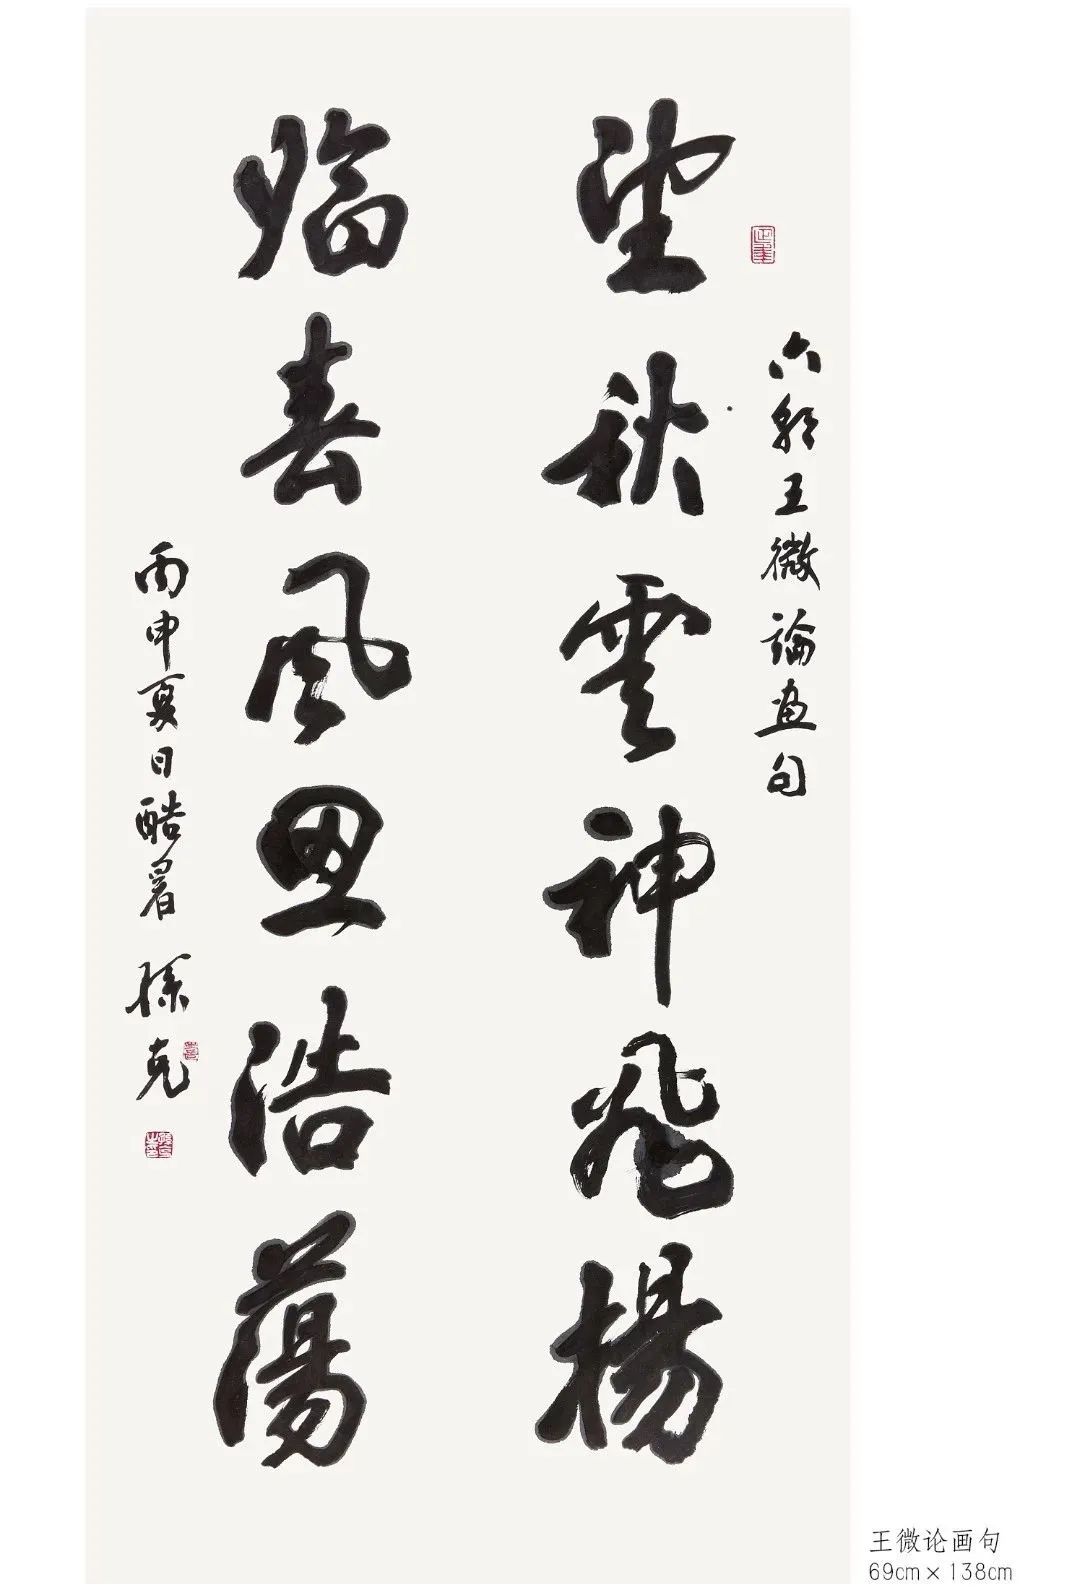 六朝王微論畫句
望秋雲神飛揚
臨春風思浩蕩
丙申夏日酷暑 孫克
王微论画句
69cm×138cm